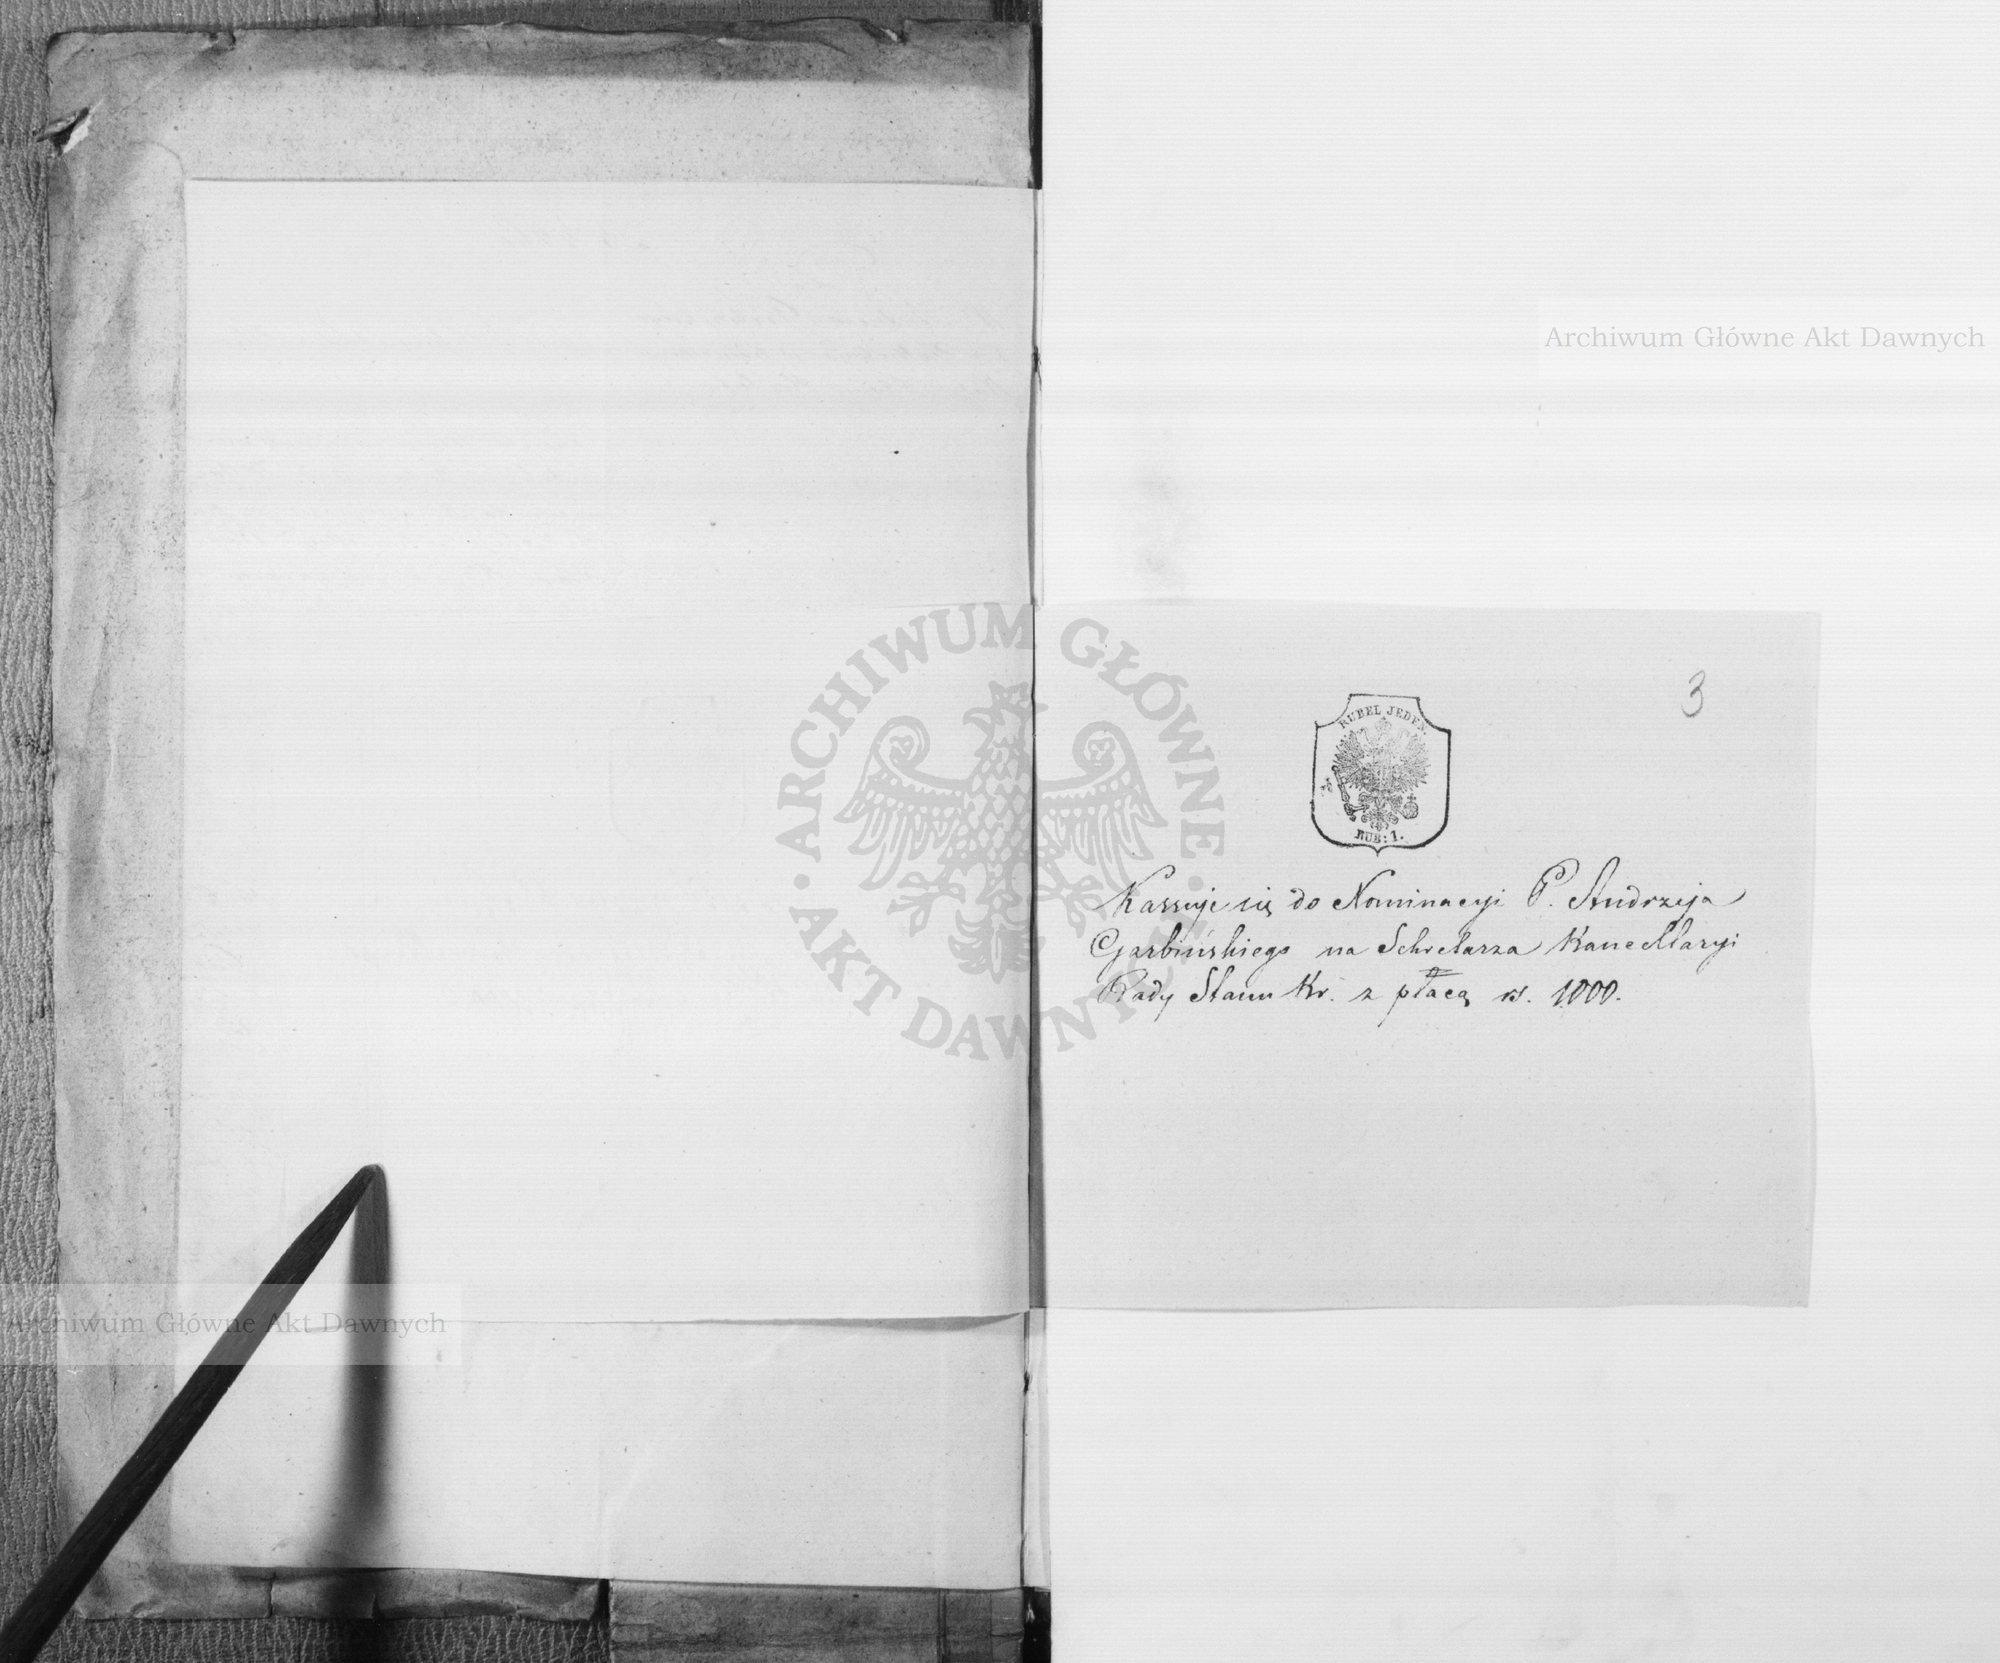 Archiwum Główne Akt Dawnych
3
RUBEL JEDEN
RUB: 1.
Kassuje się do Nominacyi P. Andrzeja
Garbińskiego na Sekretarza Kancellaryi
Rady Stanu Kr. z płacą rs. 1000.
ARCHIWUM GŁÓWNE
AKT DAWNYCH
Archiwum Główne Akt Dawnych